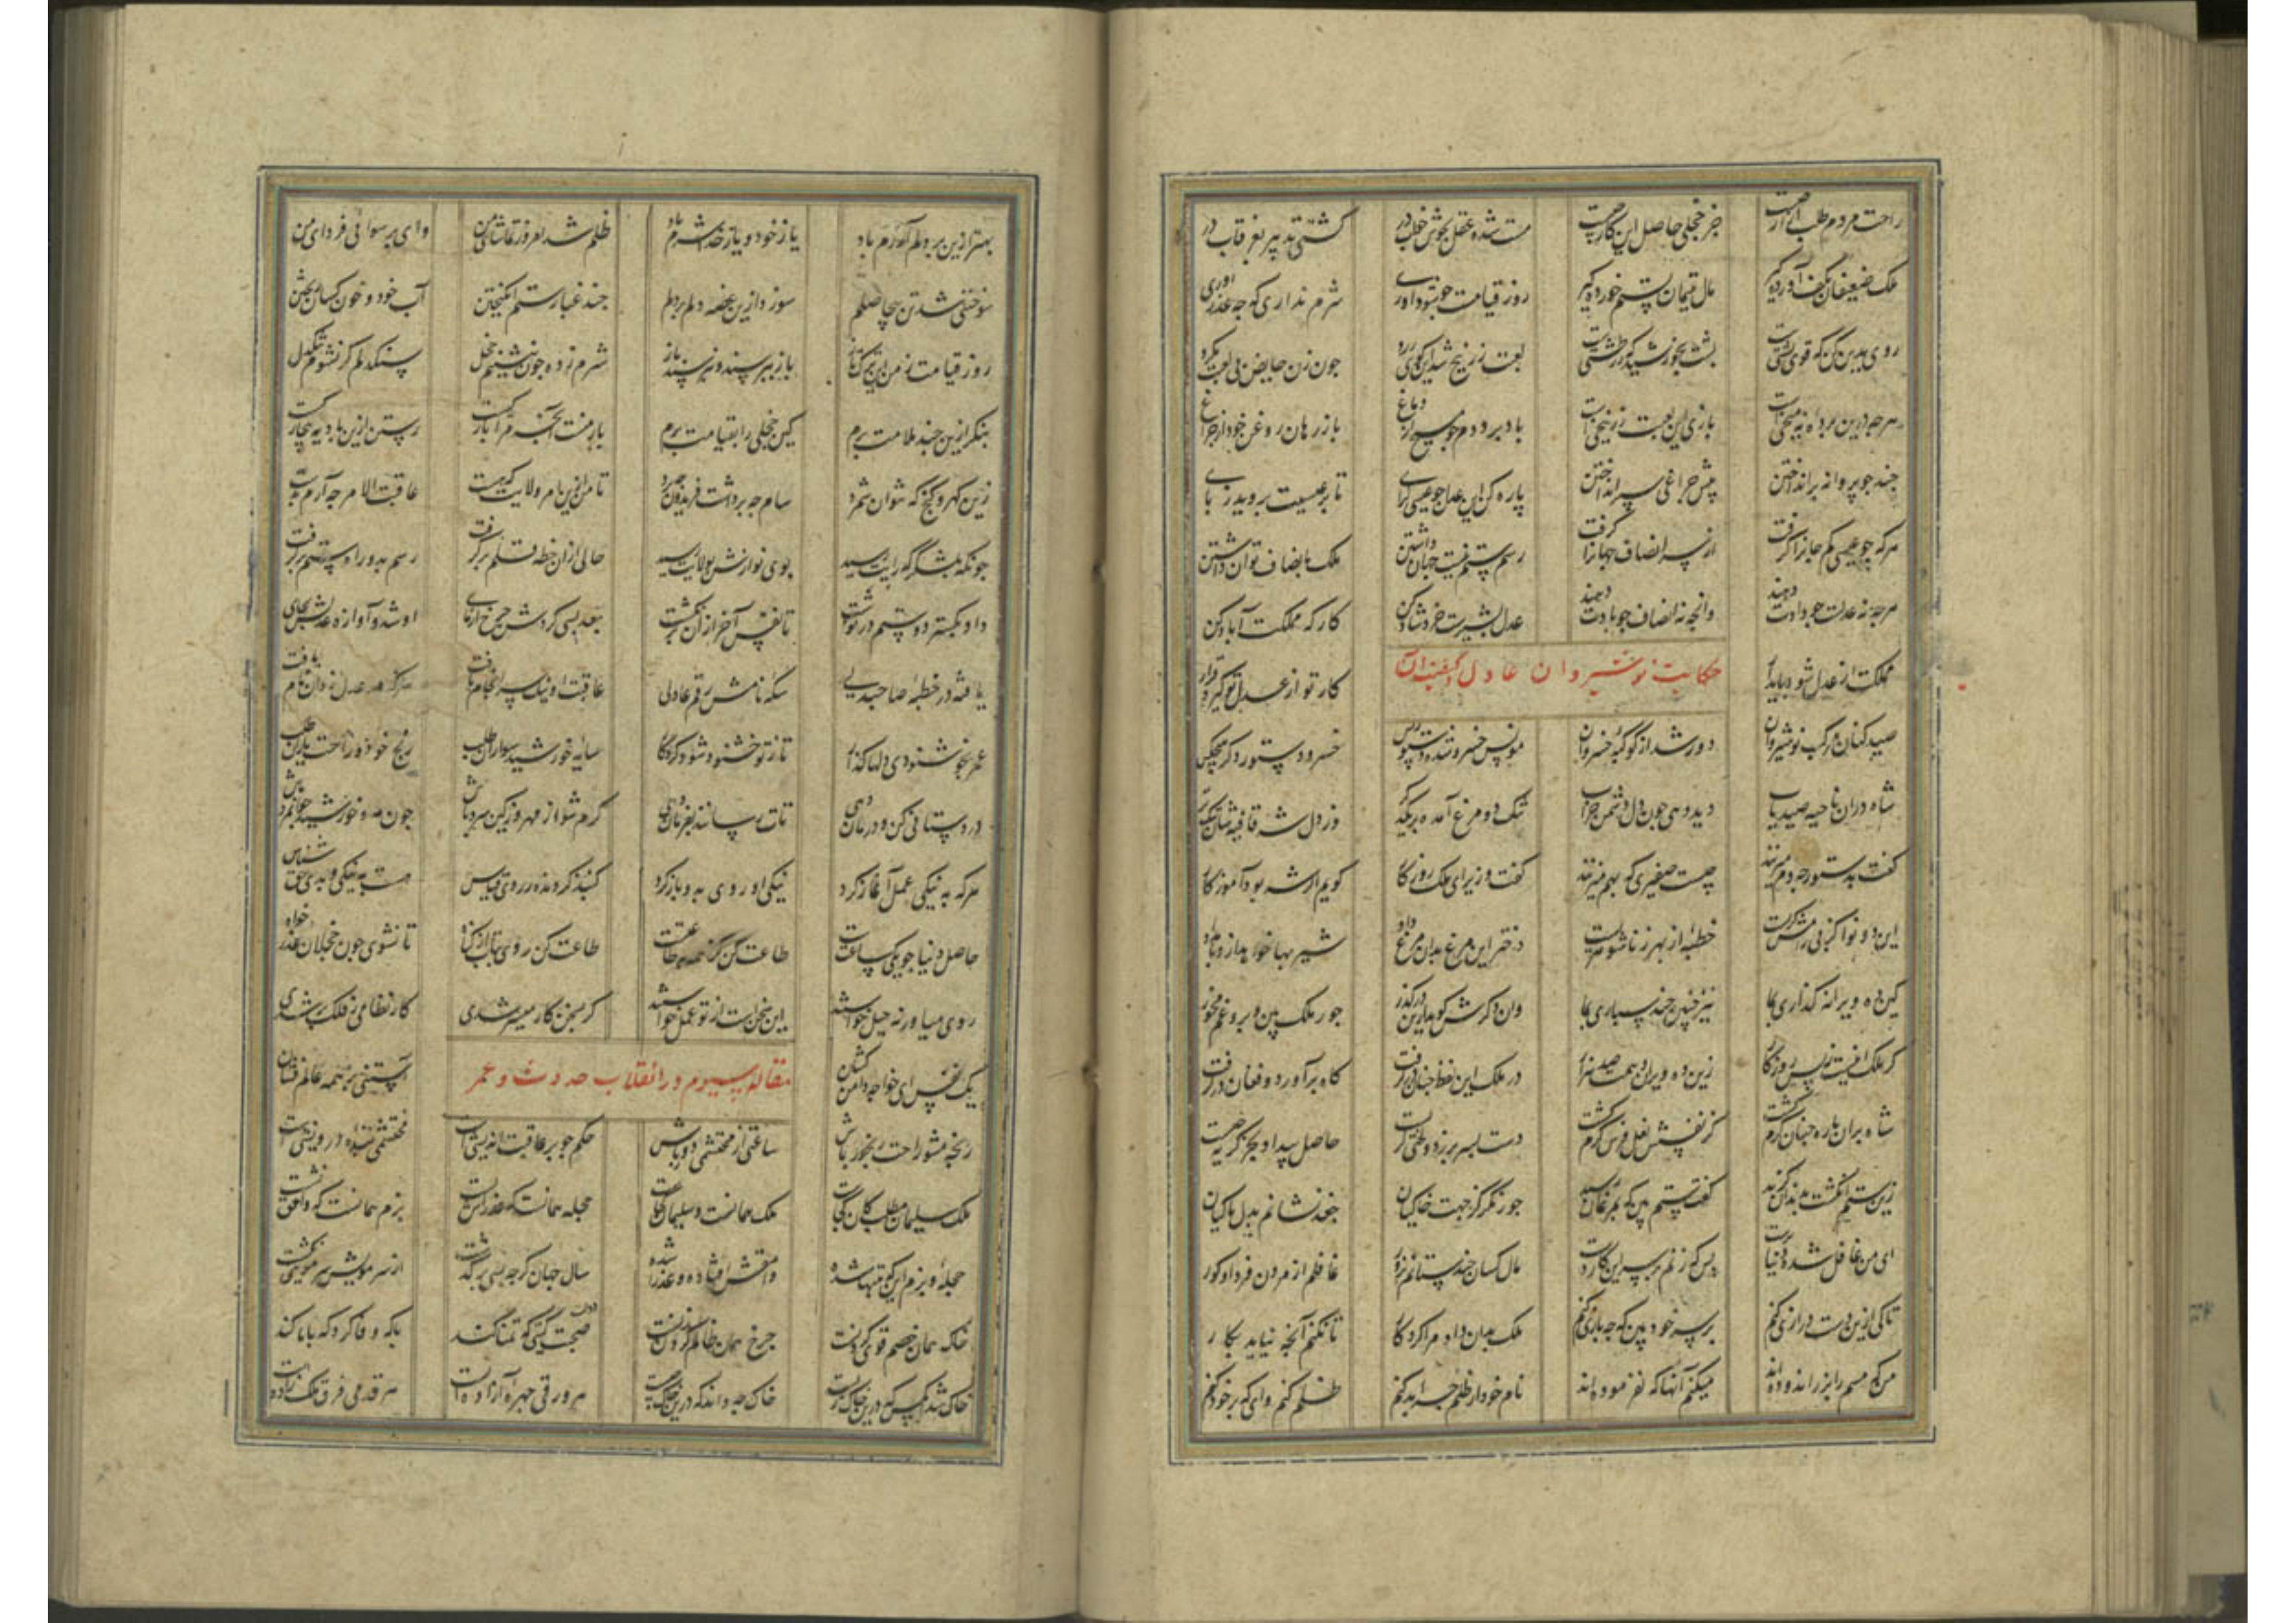 راحت مردم طلب آزار چیست جز خجلی حاصل این کار چیست مست شده عقل بخوش خواب در کشتی تدبیر بغرقاب در
ملک ضعیفان بکف آورده گیر مال یتیمان بستم خورده گیر روز قیامت چو بود داوری شرم نداری که چه عذر آوری
روی بدین کن که قوی پشتیست پشت بخورشید که زردشتیست لعبت زرنیخ شد این کوی زرد چون زن حایض پی لعبت مکرد
هرچه درین پرده نه میخیست بازی این لعبت زرنیخیست باد درو دم چو مسیح از دماغ باز رهان روغن خود از چراغ
چند چو پروانه پر انداختن پیش چراغی سپر انداختن پاره کن این چو عیسی کرای تا پر عیسیت بروید ز پای
هر که چو عیسی رک جانرا کرفت از سر انصاف جهانرا کرفت رسم ستم نیست جهان داشتن ملک بانصاف توان داشتن
هرچه نه عدلست چو دادت دهند وانچه نه انصاف چو بادت دهند عدل بشیریست خرد شاد کن کارکه مملکت آباد کن
مملکت از عدل شود پایدار کار تو از عدل تو کیرد قرار
حکایت نوشیروان عادل
صید کنان مرکب نوشیروان دور شد از کوکبه خسروان مونس خسرو شده دستور و بس خسرو و دستور و دکر هیچکس
شاه دران ناحیه صید یاب دید دهی چون دل دشمن خراب تنک دو مرغ آمده در یکدکر وز دل شه قافیه شان تنکتر
کفت بدستور چه دم میزنند چیست صفیری که بهم میزنند کفت وزیر ای ملک روزکار کویم اکر شه بود آموزکار
این دو نوا نز پی رامشکریست خطبه از بهر زناشوهریست دختر این مرغ بدان مرغ داد شیر بها خواهد ازو بامداد
کین ده ویرانه کذاری بما نیز چنین چند سپاری بما وان دکرش کفت کزین درکذر جور ملک بین و برو غم مخور
کر ملک اینست نه بس روزکار زین ده ویران دهمت صد هزار در ملک این لفظ چنان درکرفت کاه برآورد و فغان درکرفت
دست بسر بر زد و لختی کریست حاصل بیداد بجز کریه چیست
شاه بران باره چنان کرم کشت کز نفسش نعل فرس نرم کشت
زین ستم انکشت بدندان کزید کفت ستم بین که بمرغان رسید جور نکر کز جهت خاکیان جغد نشانم بدل ماکیان
ای من غافل شده دنیا پرست بس که زنم بر سر ازین کار دست مال کسان چند ستانم بزور غافلم از مردن و فردای کور
تا کی ازین دست درازی کنم بر سر خود بین که چه بازی کنم ملک بدان داد مرا کردکار تا نکنم آنچه نیاید بکار
من که مسم را بزر اندوده اند میکنم آنها که نفرموده اند نام خود از ظلم چرا بد کنم ظلم کنم وای که بر خود کنم
بهتر ازین در دلم آزرم باد یا ز خود و یا ز خدا شرم باد ظلم شد امروز تماشای من وای برسوائی فردای من
سوختنی شد تن بیحاصلم سوزد ازین غصه دلم بر دلم چند غبار ستم انکیختن آب خود و خون کسان ریختن
روز قیامت ز من این ترکتاز باز بپرسند و نپرسند باز شرم زده چون ننشینم خجل سنکدلم کر نشوم تنکدل
بنکر ازین چند ملامت برم کین خجلی را بقیامت برم بار منست آنچه مرا بارکیست رستن ازین بادیه بیچارکیست
زین کهر و کنج که نتوان شمرد سام چه برداشت فریدون چه برد تا من ازین امر ولایت که هست عاقبت الامر چه آرم بدست
چونکه بلشکرکه و رایت رسید بوی نوازش بولایت رسید حالی ازان خطه قلم برکرفت رسم بد و راه ستم برکرفت
داد بکسترد و ستم درنوشت تا نفس آخر ازان برنکشت بعد بسی کردش چرخ آزمای او شد و آوازه عدلش بجای
یافته در خطه صاحبدلی سکه نامش رقم عادلی عاقبت او نیک سرانجام یافت هرکه در عدل زد آن نام یافت
عمر بخوشنودی دلها کذار تا ز تو خشنود شود کردکار سایه خورشید سواران طلب رنج خود و راحت یاران طلب
درد ستانی کن و درمان دهی تات رسانند بفرمان دهی کرم شو از مهر و ز کین سرد باش چون مه و خورشید جوانمرد باش
هرکه به نیکی عمل آغاز کرد نیکی او روی بدو باز کرد کنبد کردنده ز روی قیاس هست به نیکی و بدی حق شناس
حاصل دنیا چو یکی ساعتست طاعت کن کز همه به طاعتست طاعت کن روی بتاب از کناه تا نشوی چون خجلان عذر خواه
روی میاور نه حیل خواستند این سخنست از تو عمل خواستند کر بسخن کار میسر شدی کار نظامی ز فلک برشدی
مقاله سیوم در انقلاب حدوث و عمر
یک نفس ای خواجه دامن کشان آستنی بر همه عالم فشان
رنجه مشو راحت رنجور باش ساعتی از محتشمی دور باش حکم چو بر عاقبت اندیشیست محتشمی بنده درویشیست
ملک سلیمان مطلب کان کجاست ملک همانست سلیمان کجاست حجله همانست که عذراش بست بزم همانست که وامق نشست
حجله و بزم اینک تنها شده وامقش افتاده و عذرا شده سال جهان کرچه بسی برکذشت از سر مویش سر مویی نکشت
خاک همان خصم قوی کردنست چرخ همان ظالم کردن زنست صحبت کیتی که تمنا کند با که وفا کرد که با ما کند
خاک شد آنکس که درین خاک زیست خاک چه داند که درین خاک چیست هر ورقی چهره آزاده ایست هر قدمی فرق ملک زاده ایست